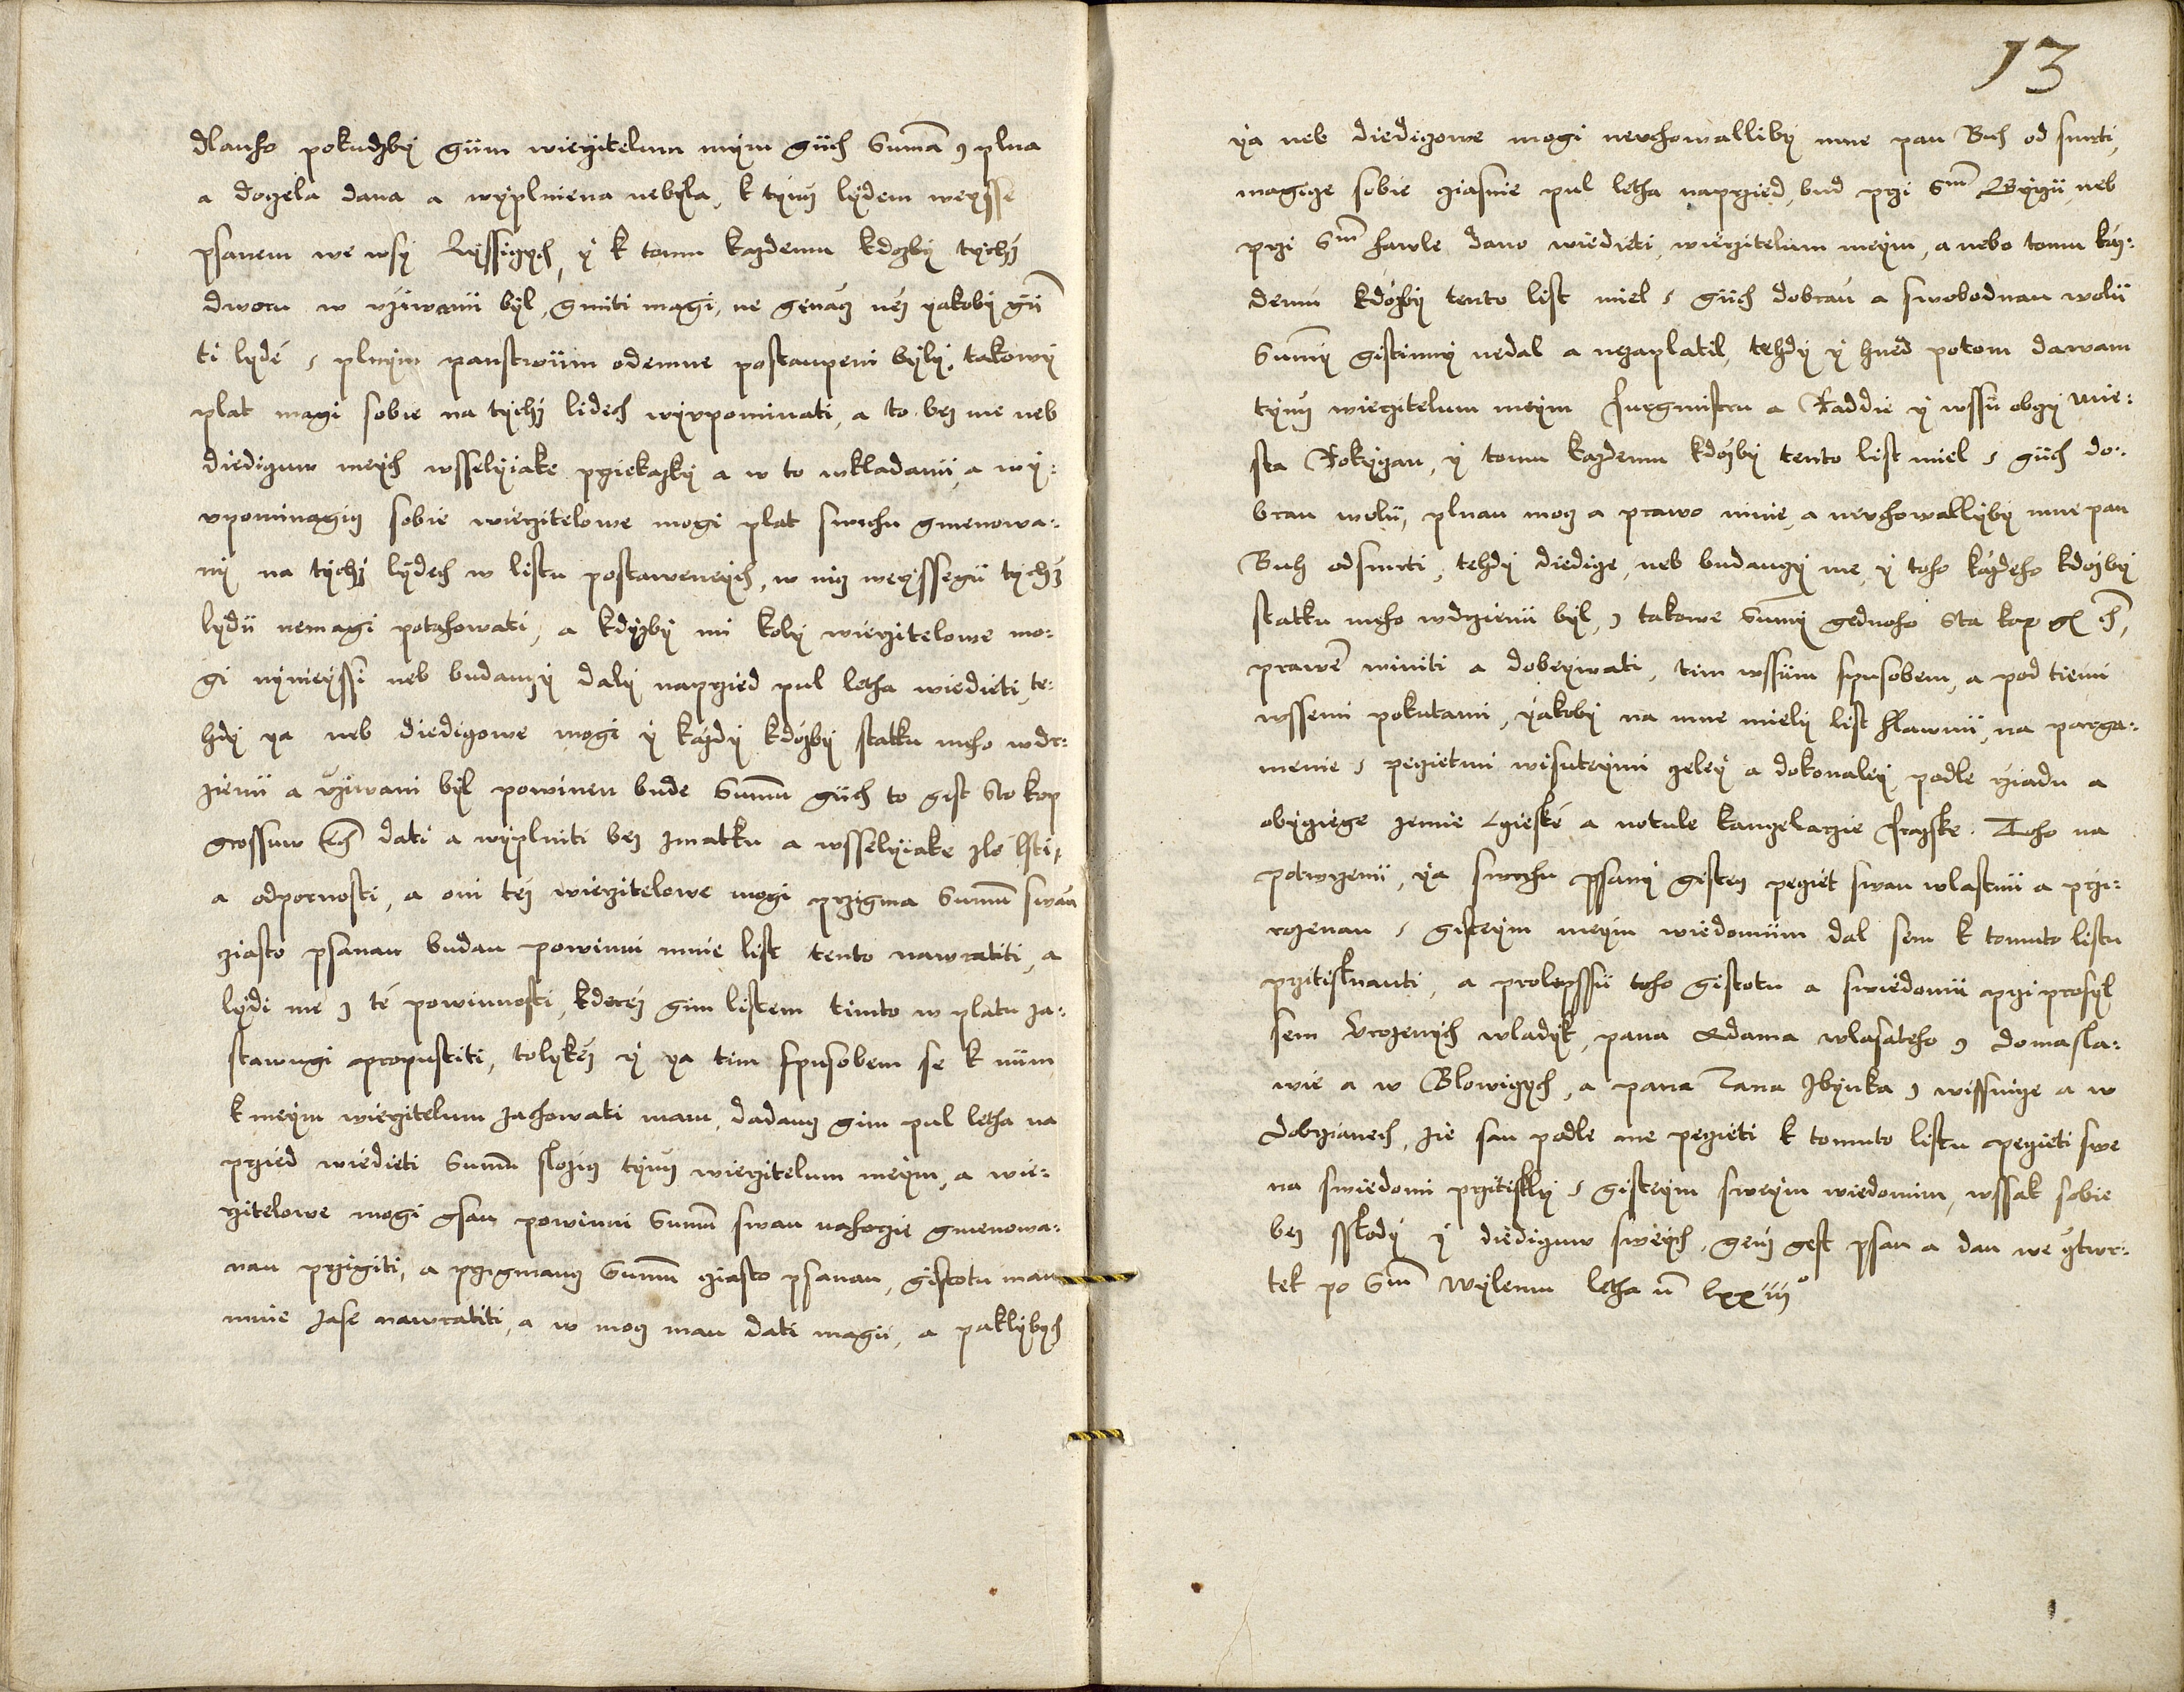 dlauho pokudžby gim wierzitelum mym gich Suma z plna
a dozela dana a wyplniena nebyla, k tymž lydem weysse
psanem we wsy Lyssiczych, y k tomu každemu kdožby tychž
dworu w užiwanii byl, gmiti magi, ne genacz než yakoby gii
ti lyde s plnym panstwiim odemne postaupeni byly, takowy
plat magi sobie na tychž lidech wyupominati, a to bez me neb
diediczuw meych wsselyiake przekazky a w to wkladanii, a wy:
upominagicz sobie wierzitelowe mogi plat swrchu gmenowa:
ny na tychž lydech w listu postawenych, w nicz weyssegii tychž
lydii nemagi potahowati, a kdyžby mi koly wierzitelowe mo:
gi nynieyssi neb budauczy daly naprzied pul letha wiedieti, te:
hdy ya neb diediczowe mogi y každy kdožby statku meho wdr:
zienii a užiwani byl powinen bude Summu giich to gest Sto kop
grossuw čh dati a wyplniti bez zmatku a wsselyiake zle lsti,
a odpornosti, a oni tež wierzitelowe mogi przigma Summu swau
ziasto psanau budau powinni mnie list tento nawratiti, a
lydi me z te powinnosti, kderež gim listem timto w platu za:
stawugi propustiti, tolykež y ya tim spusobem se k niim
k meym wierzitelum zachowati mam, dadaucz gim pul letha na
przied wiedieti Summu složicz tymž wierzitelum meym, a wie:
rzitelowe mogi gsau powinni Summu swau nahorzie gmenowa:
nau przigiti, a przigmaucz Summu ziasto psanau, gistotu mau
mnie zase nawratiti, a w mocz mau dati magii, a paklybych
13
ya neb diediczowe mogi neuchowallibÿ mne pan Buh od smrti,
magicze sobie ziasnie pul letha naprzied, bud przi Sm Girzii, neb
przi Sm Hawle dano wiedieti, wierzitelum meym, a nebo tomu kaz:
demu kdožby tento list miel s giich dobrau a swobodnau wolii
Summy gistinny nedal a nezaplatil, tehdy y hned potom dawam
tymž wierzitelum meym Purgmistru a Raddie y wssii obczy mie:
sta Rokyczan, y tomu každemu kdožby tento list miel s giich do:
brau wolii, plnau mocz a prawo mnie, a neuchowallyby mne pan
Buh odsmrti, tehdy diedicze, neb budauczy me, y toho každeho kdožby
statku meho wdrzienii byl, z takowe Summy gednoho Sta kop gr čh,
prawem winiti a dobeywati, tim wssiim spusobem, a pod tiemi
wssemi pokutami, yakoby na mne miely list hlawnii, na parga:
menie s peczietmi wisuteymi czeley a dokonaley podle rziadu a
obyczege zemie Czieske a notule kanczelarzie Prazske. Toho na
potwrzenii, ya swrchu psany gistecz peczet swau wlastnii a przi:
rozenau s gisteym meym wiedomiim dal sem k tomuto listu
przitisknauti, a prolepssii toho gistotu a swiedomii prziprosyl
sem Urozenych wladyk, pana Adama wlasateho z domasla:
wie a w Blowiczych, a pana Jana Zbynka z wissnicze a w
dobrzanech, zie sau podle me peczieti k tomuto listu peczieti swe
na swiedomi przitiskly s gisteym sweym wiedomim, wssak sobie
bez sskody y diediczuw sweych, genž gest psan a dan we cztwr:
tek po Sm wylemu letha m lxxiiij°